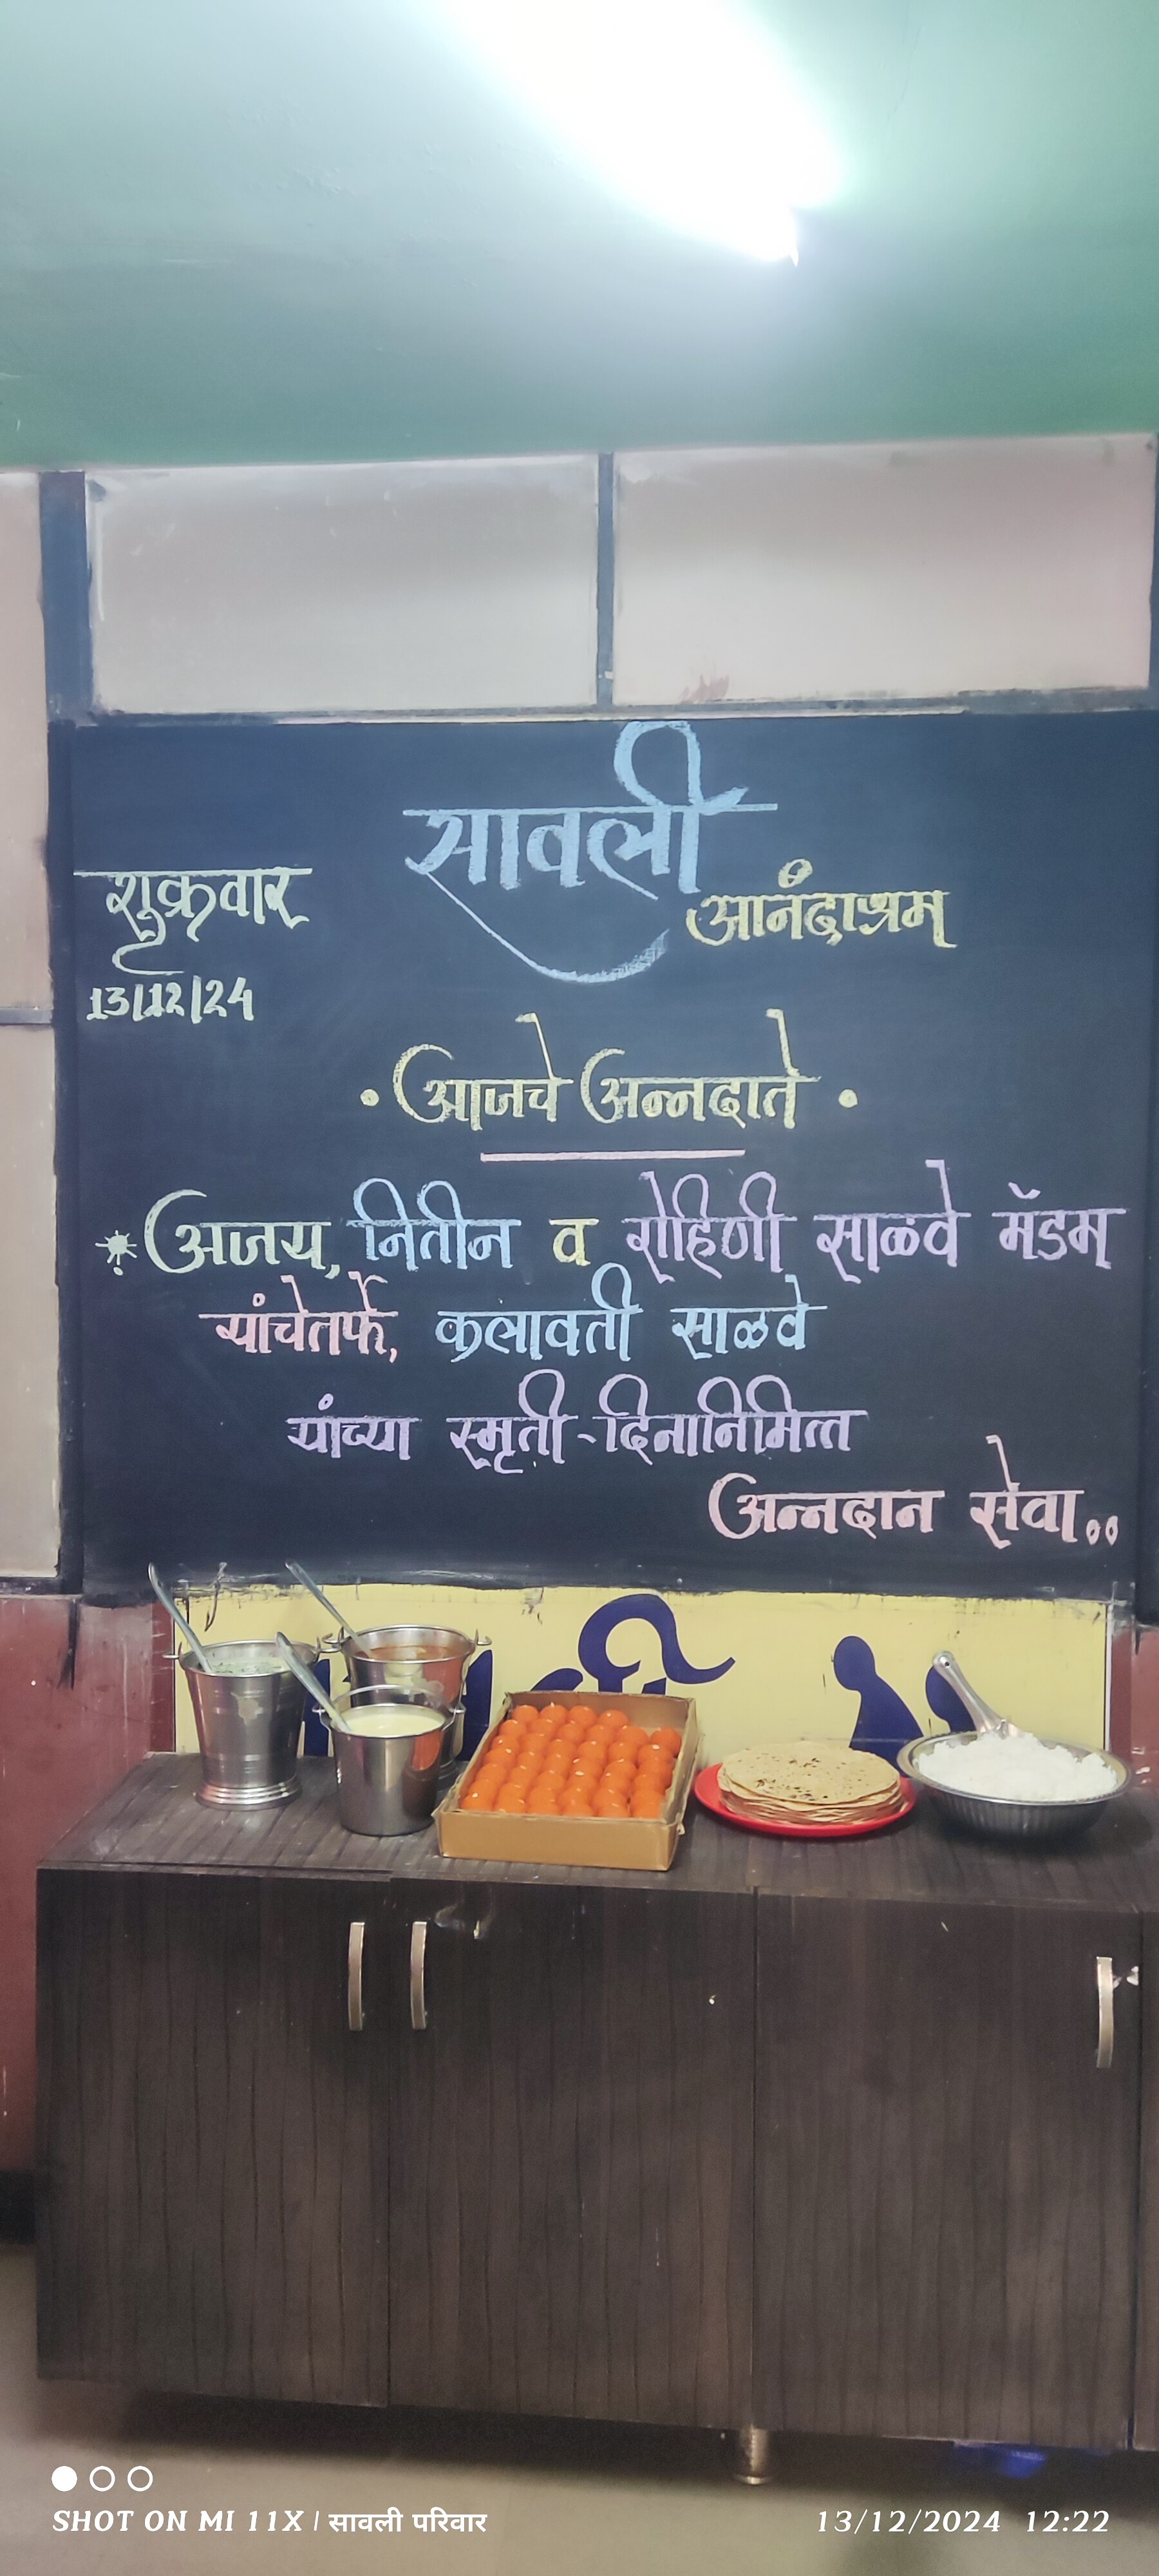 सावली
आनंदाश्रम
शुक्रवार
13/12/24
• आजचे अन्नदाते •
* अजय, नितीन व रोहिणी साळवे मॅडम
यांचेतर्फे, कलावती साळवे
यांच्या स्मृती-दिनानिमित्त
अन्नदान सेवा..
SHOT ON MI 11X | सावली परिवार
13/12/2024 12:22